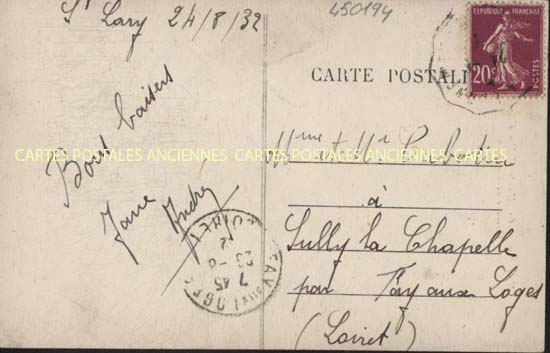 St Lary 24/8/32
450194
RÉPUBLIQUE FRANÇAISE
20c
POSTES
CARTE POSTALE
Bons baisers
Jane Andrey
Mme et Mr
CARTES POSTALES ANCIENNES CARTES POSTALES ANCIENNES CARTES
à
Sully la Chapelle
par Fay aux Loges
(Loiret)
FAY AUX LOGES
LOIRET
7 45